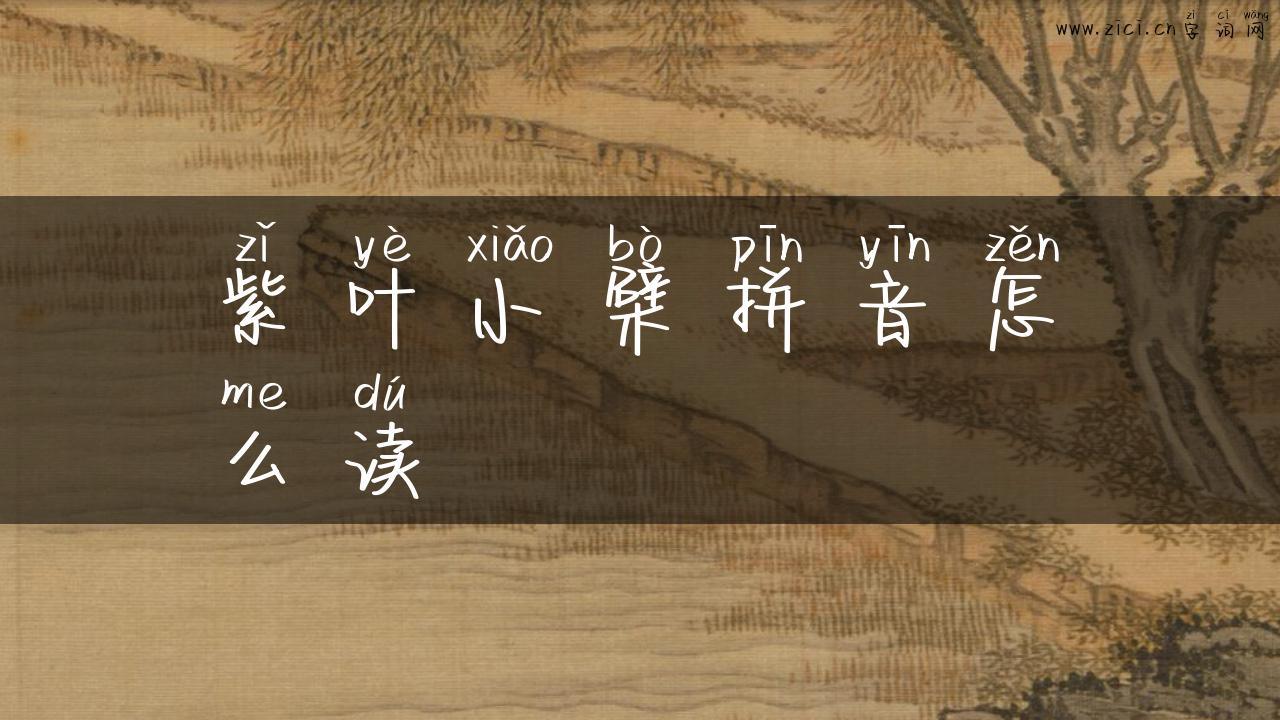 www.zici.cn zì cí wǎng
字词网
zǐ yè xiǎo bò pīn yīn zěn
紫叶小檗拼音怎
me dú
么读